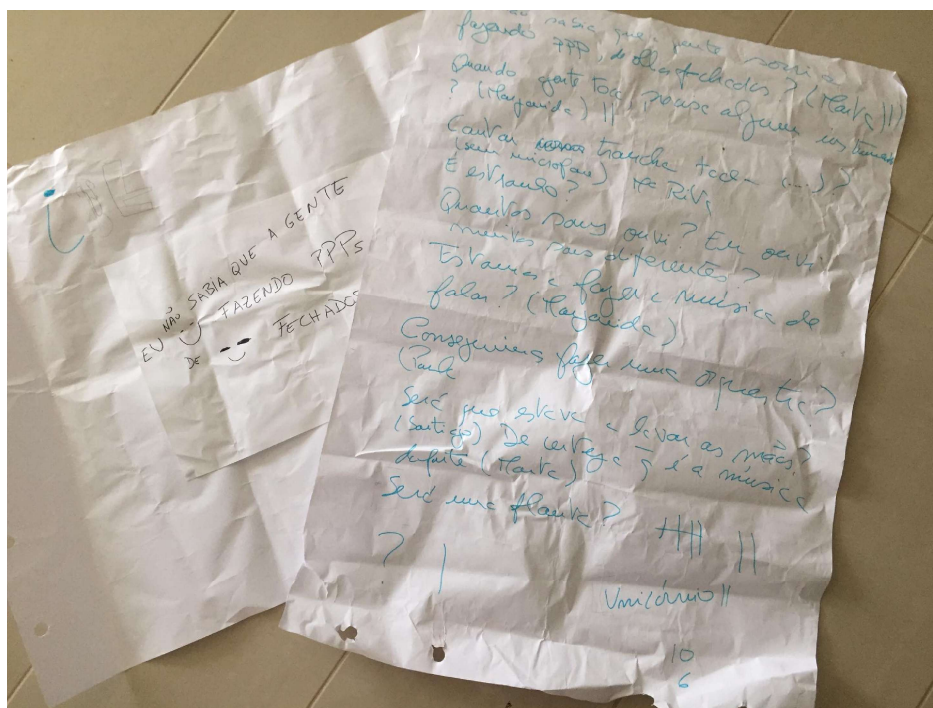 EU NÃO SABIA QUE A GENTE
FAZENDO PPPs
DE FECHADOS
sabia que a gente sorria
fazendo PPP, de olhos fechados? (Marta) |||
Quando a gente toca parece algum instrumento
? (Margarida) ||
Cantar
(sem microfone)
É estranho?
Quantos sons ouvi? Eu ouvi
muitos sons diferentes?
Estamos a fazer a música de
falar? (Margarida)
Conseguimos fazer uma orquestra?
(Paula
Será que esteve a lavar as mãos?
(Santiago) De certeza q é a música
(Marta)
Será uma flauta?
?
Unicórnio ||
10
6